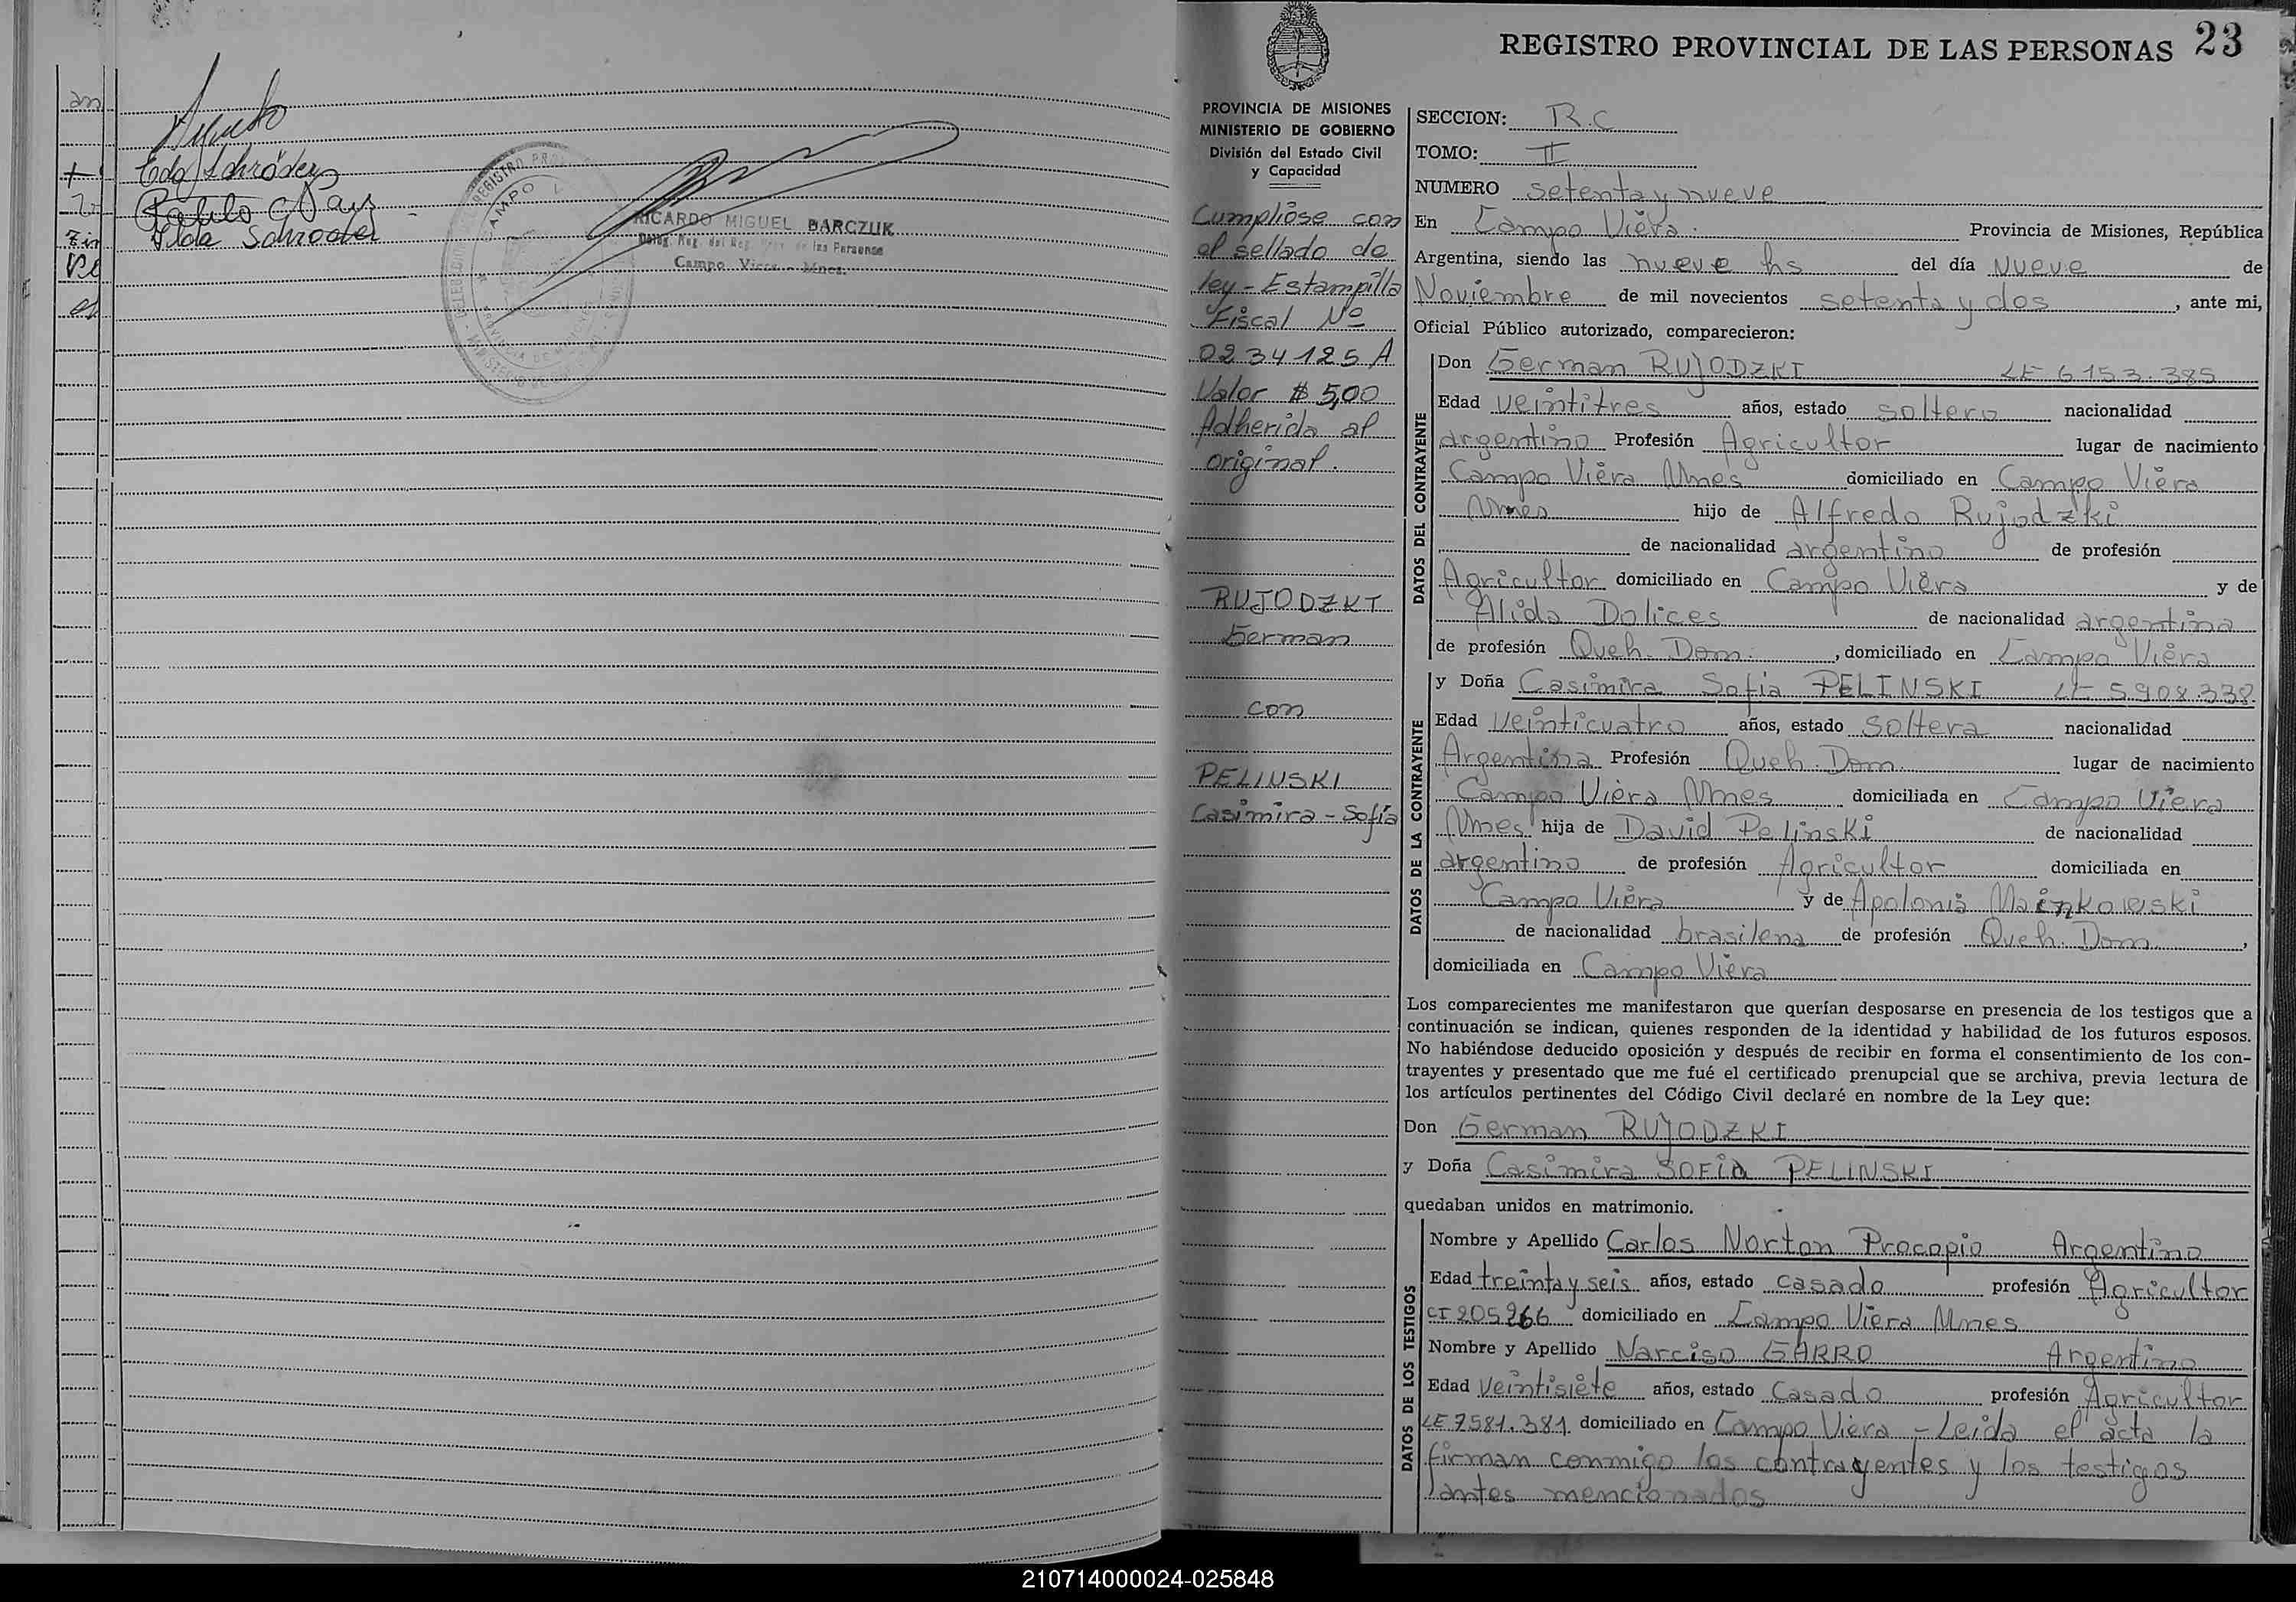 Edg Schröder
Pablo
Ilda Schroder
RICARDO MIGUEL BARCZUK
Deleg. Reg. del Reg. Prov. de las Personas
Campo Viera - Mnes.
REGISTRO PROVINCIAL DE LAS PERSONAS 23
PROVINCIA DE MISIONES
MINISTERIO DE GOBIERNO
División del Estado Civil
y Capacidad
Cumplióse con
el sellado de
ley - Estampilla
Fiscal Nº
0234125 A
Valor $ 5,00
Adherida al
original.
RUJODZKI
German
con
PELINSKI
Casimira - Sofía
SECCION: R.C
TOMO: II
NUMERO setenta y nueve
En Campo Viera. Provincia de Misiones, República
Argentina, siendo las nueve hs del día nueve de
Noviembre de mil novecientos setenta y dos, ante mi,
Oficial Público autorizado, comparecieron:
DATOS DEL CONTRAYENTE
Don German RUJODZKI LE 6153.385
Edad veintitres años, estado soltero nacionalidad
argentino Profesión Agricultor lugar de nacimiento
Campo Viera Mnes domiciliado en Campo Viera
Mnes hijo de Alfredo Rujodzki
de nacionalidad argentino de profesión
Agricultor domiciliado en Campo Viera y de
Alida Dolices de nacionalidad argentina
de profesión Queh. Dom., domiciliado en Campo Viera
DATOS DE LA CONTRAYENTE
y Doña Casimira Sofia PELINSKI LE 5908.338.
Edad veinticuatro años, estado soltera nacionalidad
Argentina Profesión Queh. Dom. lugar de nacimiento
Campo Viera Mnes domiciliada en Campo Viera
Mnes hija de David Pelinski de nacionalidad
argentino de profesión Agricultor domiciliada en
Campo Viera y de Apolonia Mainkowski
de nacionalidad brasilena de profesión Queh. Dom.,
domiciliada en Campo Viera
Los comparecientes me manifestaron que querían desposarse en presencia de los testigos que a
continuación se indican, quienes responden de la identidad y habilidad de los futuros esposos.
No habiéndose deducido oposición y después de recibir en forma el consentimiento de los con-
trayentes y presentado que me fué el certificado prenupcial que se archiva, previa lectura de
los artículos pertinentes del Código Civil declaré en nombre de la Ley que:
Don German RUJODZKI
y Doña Casimira SOFIA PELINSKI
quedaban unidos en matrimonio.
DATOS DE LOS TESTIGOS
Nombre y Apellido Carlos Norton Procopio Argentino
Edad treinta y seis años, estado casado profesión Agricultor
CI 205266 domiciliado en Campo Viera Mnes
Nombre y Apellido Narciso GARRO Argentino
Edad veintisiete años, estado casado profesión Agricultor
LE 7581.381 domiciliado en Campo Viera - Leida el acta la
firman conmigo los contrayentes y los testigos
antes mencionados
210714000024-025848